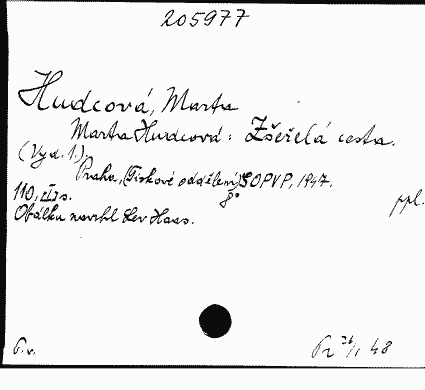 205977
Hudcová, Marta
Marta Hudcová: Zšeřelá cesta.
(Vyd. 1.)
Praha, (Tiskové oddělení) SOPVP, 1947.
110, s. 8°
ppl.
Obálku navrhl Lev Haas.
P.v.
Př 26/1 48